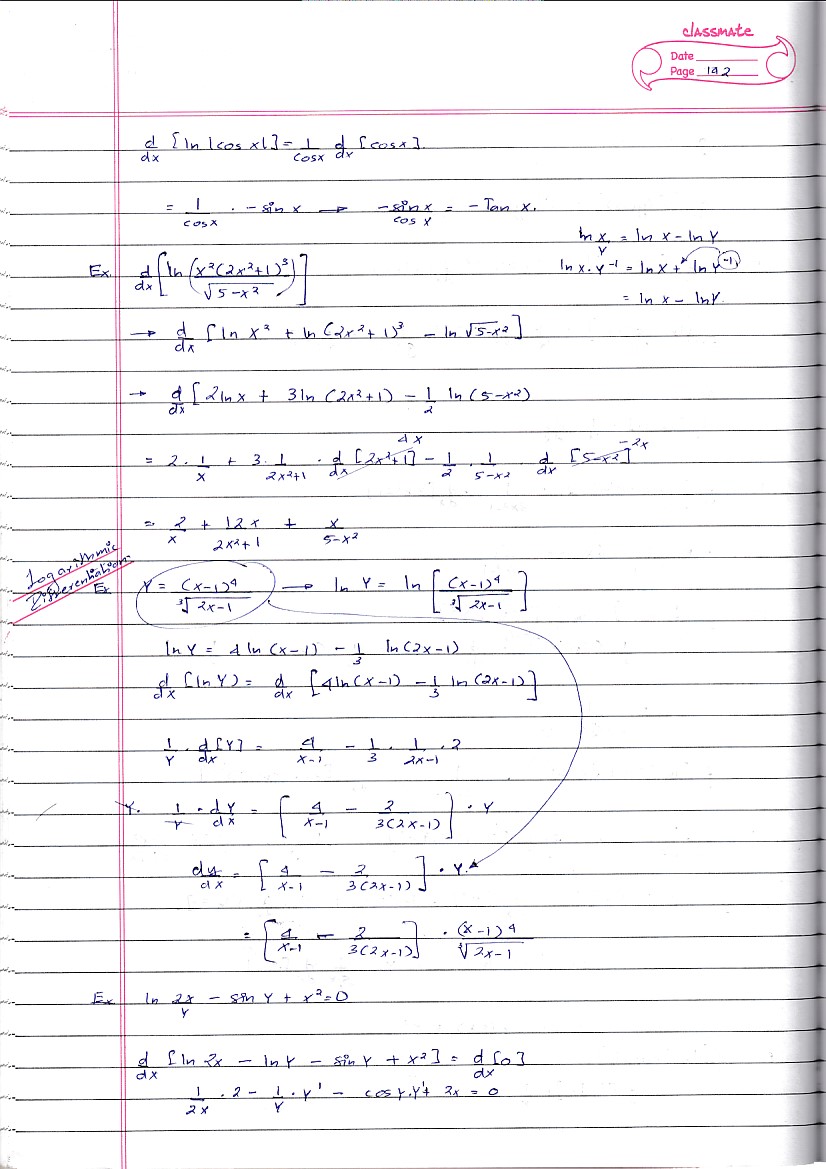 classmate
Date
Page 142
d/dx [ln |cos x|] = 1/cosx d/dx [cosx].
= 1/cosx · -sin x → -sin x/cos x = -Tan x.
ln x/y = ln x - ln y
ln x·y⁻¹ = ln x + ln y⁻¹
= ln x - ln y.
Ex. d/dx [ln (x²(2x²+1)³/√5-x²)]
→ d/dx [ln x² + ln (2x²+1)³ - ln √5-x²]
→ d/dx [2 ln x + 3 ln (2x²+1) - 1/2 ln (5-x²)
= 2·1/x + 3·1/2x²+1 · d/dx [2x²+1] 4x - 1/2 · 1/5-x² d/dx [5-x²] -2x
= 2/x + 12x/2x²+1 + x/5-x²
Logarithmic
Differentiation.
Ex Y = (x-1)⁴/∛2x-1 → ln Y = ln [(x-1)⁴/∛2x-1]
ln Y = 4 ln (x-1) - 1/3 ln(2x-1)
d/dx [ln Y) = d/dx [4 ln (x-1) - 1/3 ln (2x-1)]
1/Y · d/dx [Y] = 4/x-1 - 1/3 · 1/2x-1 · 2
Y. 1/Y · dY/dx = [4/x-1 - 2/3(2x-1)] · Y
dy/dx = [4/x-1 - 2/3(2x-1)] · Y.
= [4/x-1 - 2/3(2x-1)] · (x-1)⁴/∛2x-1
Ex ln 2x/Y - sin Y + x² = 0
d/dx [ln 2x - ln Y - sin Y + x²] = d/dx [0]
1/2x · 2 - 1/Y · Y' - cos Y.Y' + 2x = 0